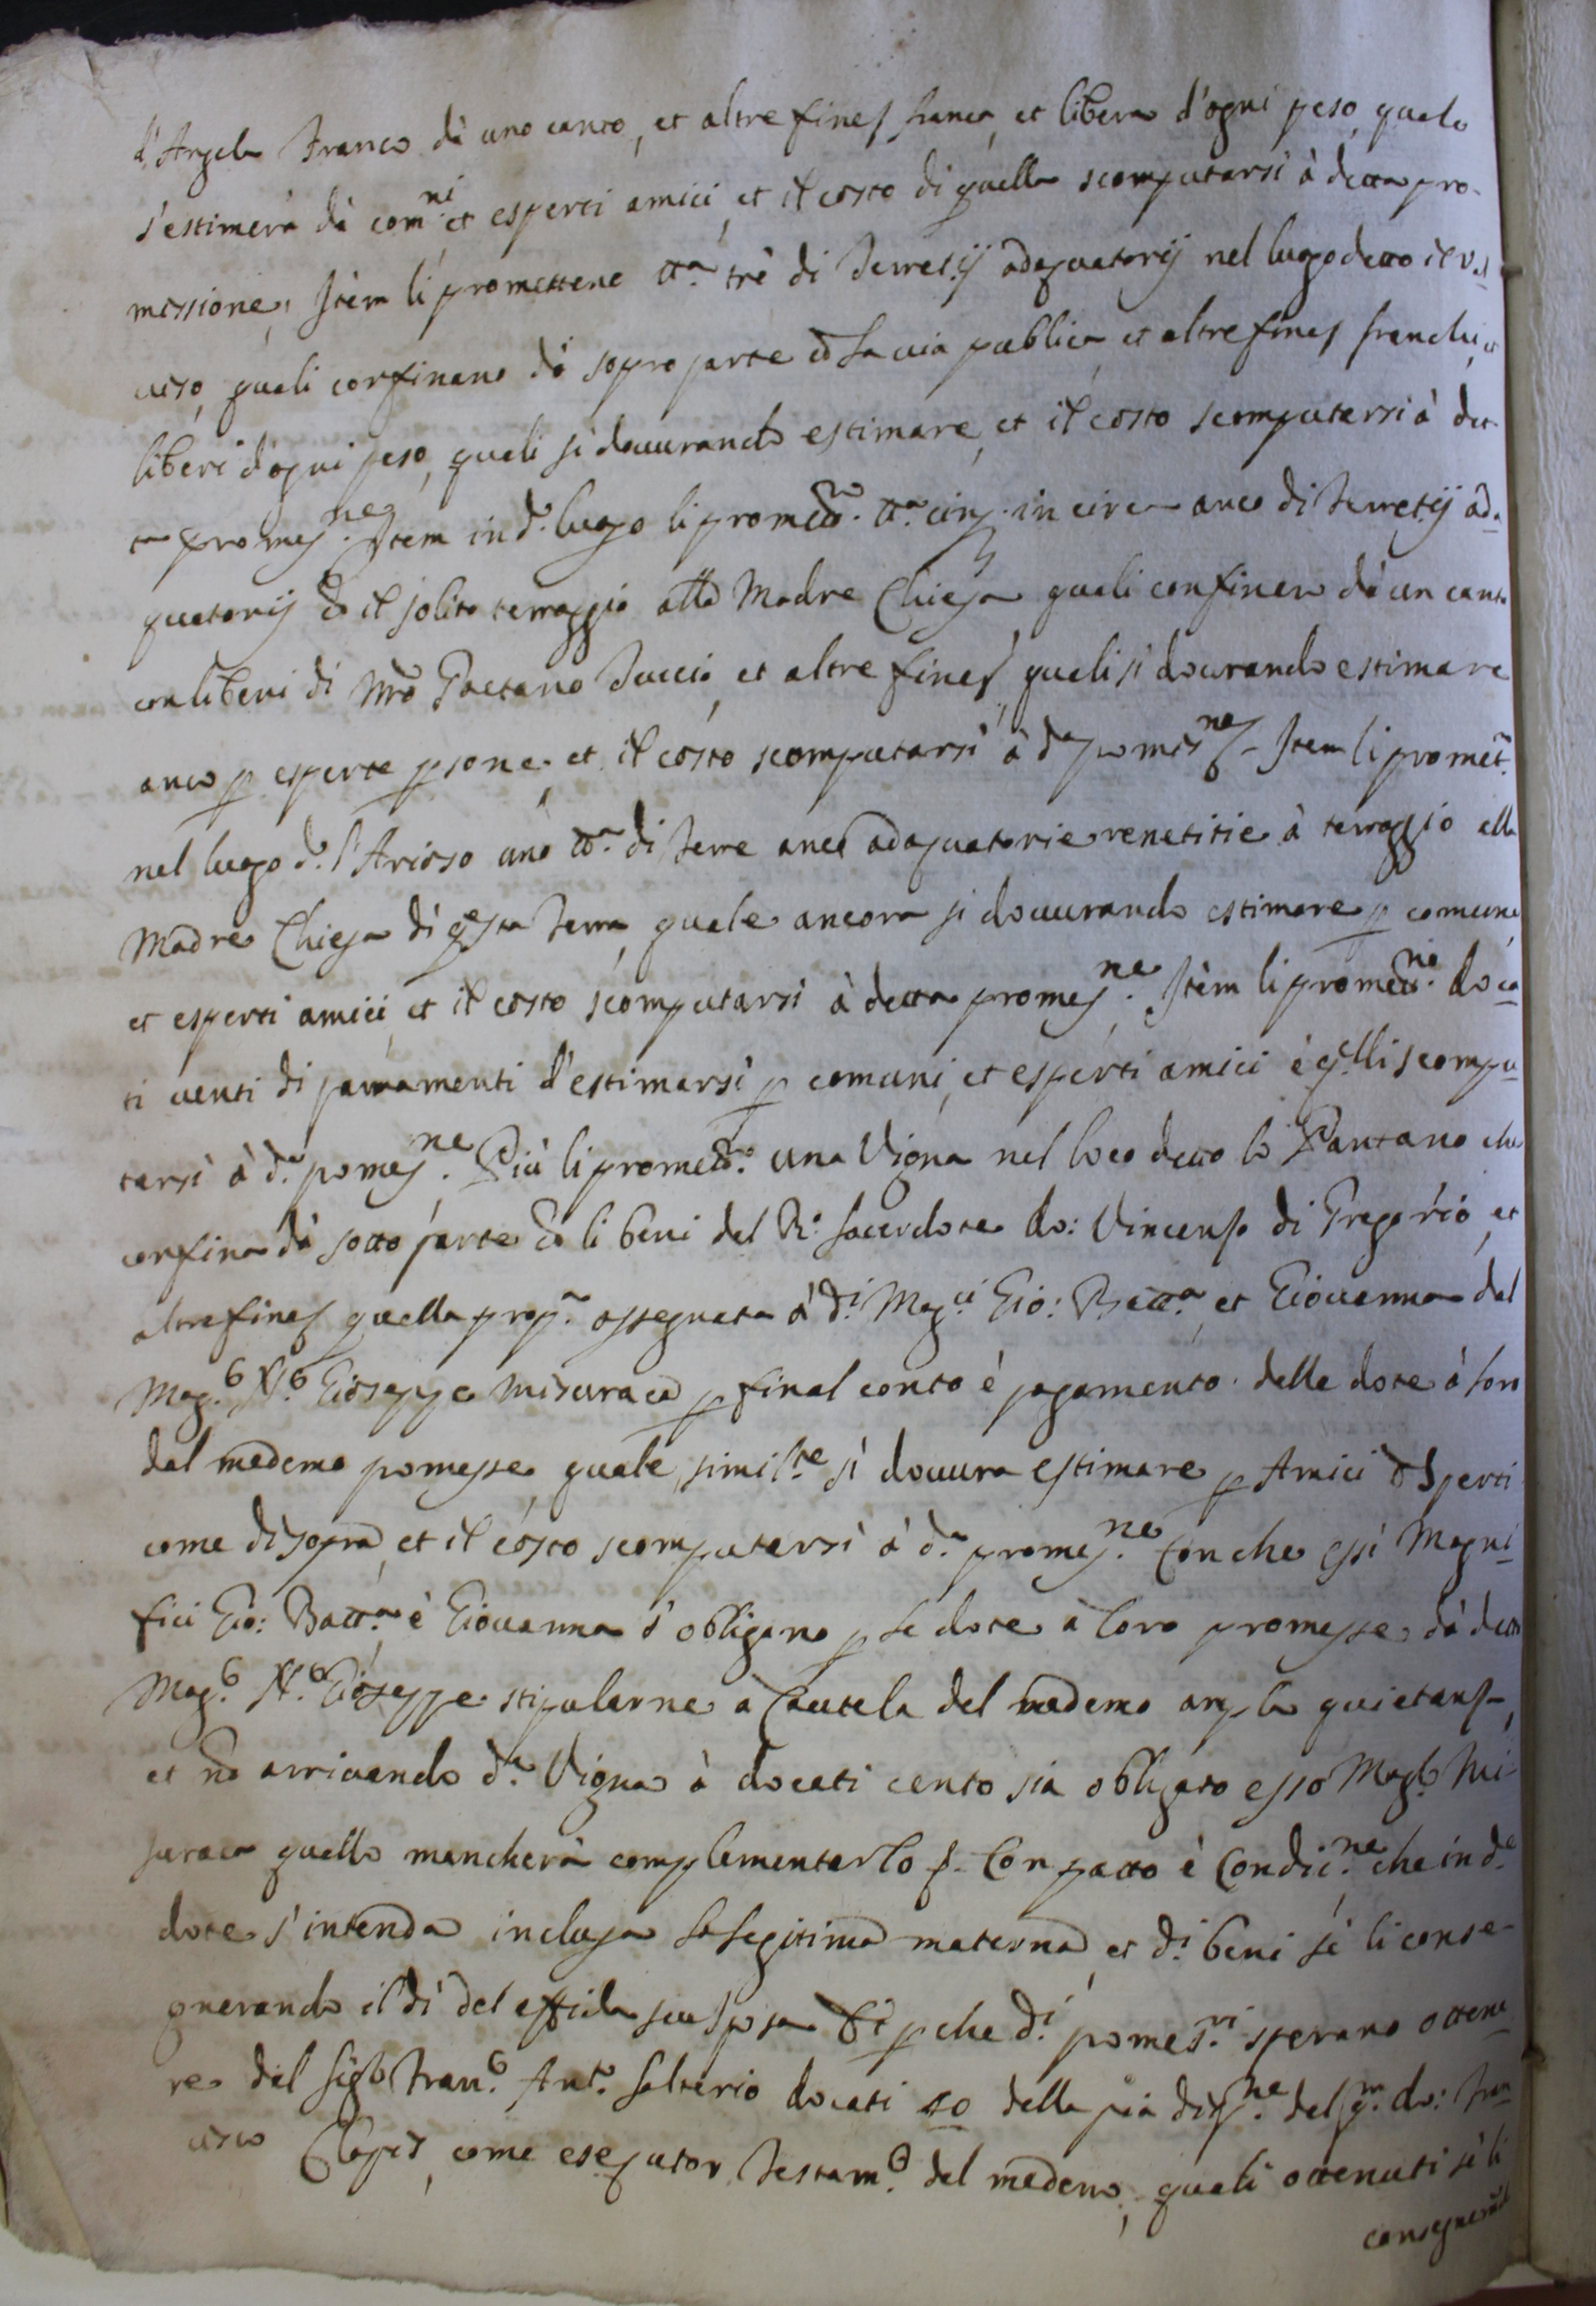 d'Angela Franco da uno canto, et altre fines franca, et libera d'ogni peso, quale
s'estimerà dà com.ni et esperti amici, et il costo di quella scomputarsi à detta pro-
messione, Item li promettene tt.a trè di Terretij adaquatorij nel luogo detto il
quali confinano dà sopra parte cō la via publica et altre fines franchi, et
liberi d'ogni peso, quali si dovurando estimare, et il costo scomputarsi à det-
ta promes.ne Item in d.o luogo li promett.o tt.a cinq. in circa anco di Terretij ada-
quatorij cō il solito terraggio alla Madre Chiesa, quali confinano dà un canto
con li beni di Mrō Gaetano Tuccio, et altre fines, quali si dovurando estimare
anco p esperte psone, et il costo scomputarsi à d.a promes.ne Item li promett.
nel luogo d.o l'Arioso una tt.a di Terre anco adaquatorie renetitie à terraggio alla
Madre Chiesa di q.esta Terra, quale ancora si dovurando estimare p comuni
et esperti amici, et il costo scomputarsi à detta promes.ne Item li promett.no doca-
ti venti di paramenti d'estimarsi p comuni, et esperti amici è q.elli scompu-
tarsi à d.a pomes.ne Più li promett.o una Vigna nel loco detto lo Pantano che
confina dà sotto parte cō li beni del R.o Sacerdote do: Vincenso di Gregorio, et
altre fines quella prop.a assegnata à d.i Mag.ci Gio: Batt.a et Giovanna dal
Mag.co N.o Gioseppe Misuraca p final conto è pagamento delle dote à loro
dal medemo pomesse, quale simil.te si dovurà estimare p Amici Esperti
come di sopra, et il costo scomputarsi à d.a promes.ne Con che essi Magni-
fici Gio: Batt.a è Giovanna s'obligano p le dote à loro promesse dà detto
Mag.co N.o Gioseppe stipularne a Cautela del medemo ampla quietansa,
et nō arrivando d.a Vigna à docati cento sia obligato esso Mag.co Mi-
suraca quello mancherà complementarlo Con patto è Condic.ne che in d.e
dote s'intenda inclusa la legitima materna, et d.i beni sè li conse-
gnerando il dì del effida seu sposa Et p che d.i pomes.ri sperano ottene-
re dal Sig.r Fran.co Ant.o Salterio docati 50 della pia disp.ne del q.m do: Fran-
cisco come esequtor Testam.o del medemo, quali ottenuti sè li
consegnerād